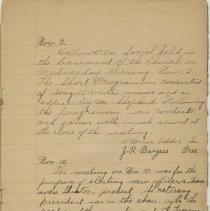 Nov. 2.
Halloween Social held in
the basement of the Church on
Wednesday evening Nov 2.
The Short Programme consisted
of songs, music and an
address by Mr. Following
the programme were contests
and games with lunch served at
the close of the meeting.
J. R. Burgess Pres.
Nov. 10.
The meeting on Nov. 10. was for the
purpose of electing new officers
were present. The retiring
president was in the chair with the